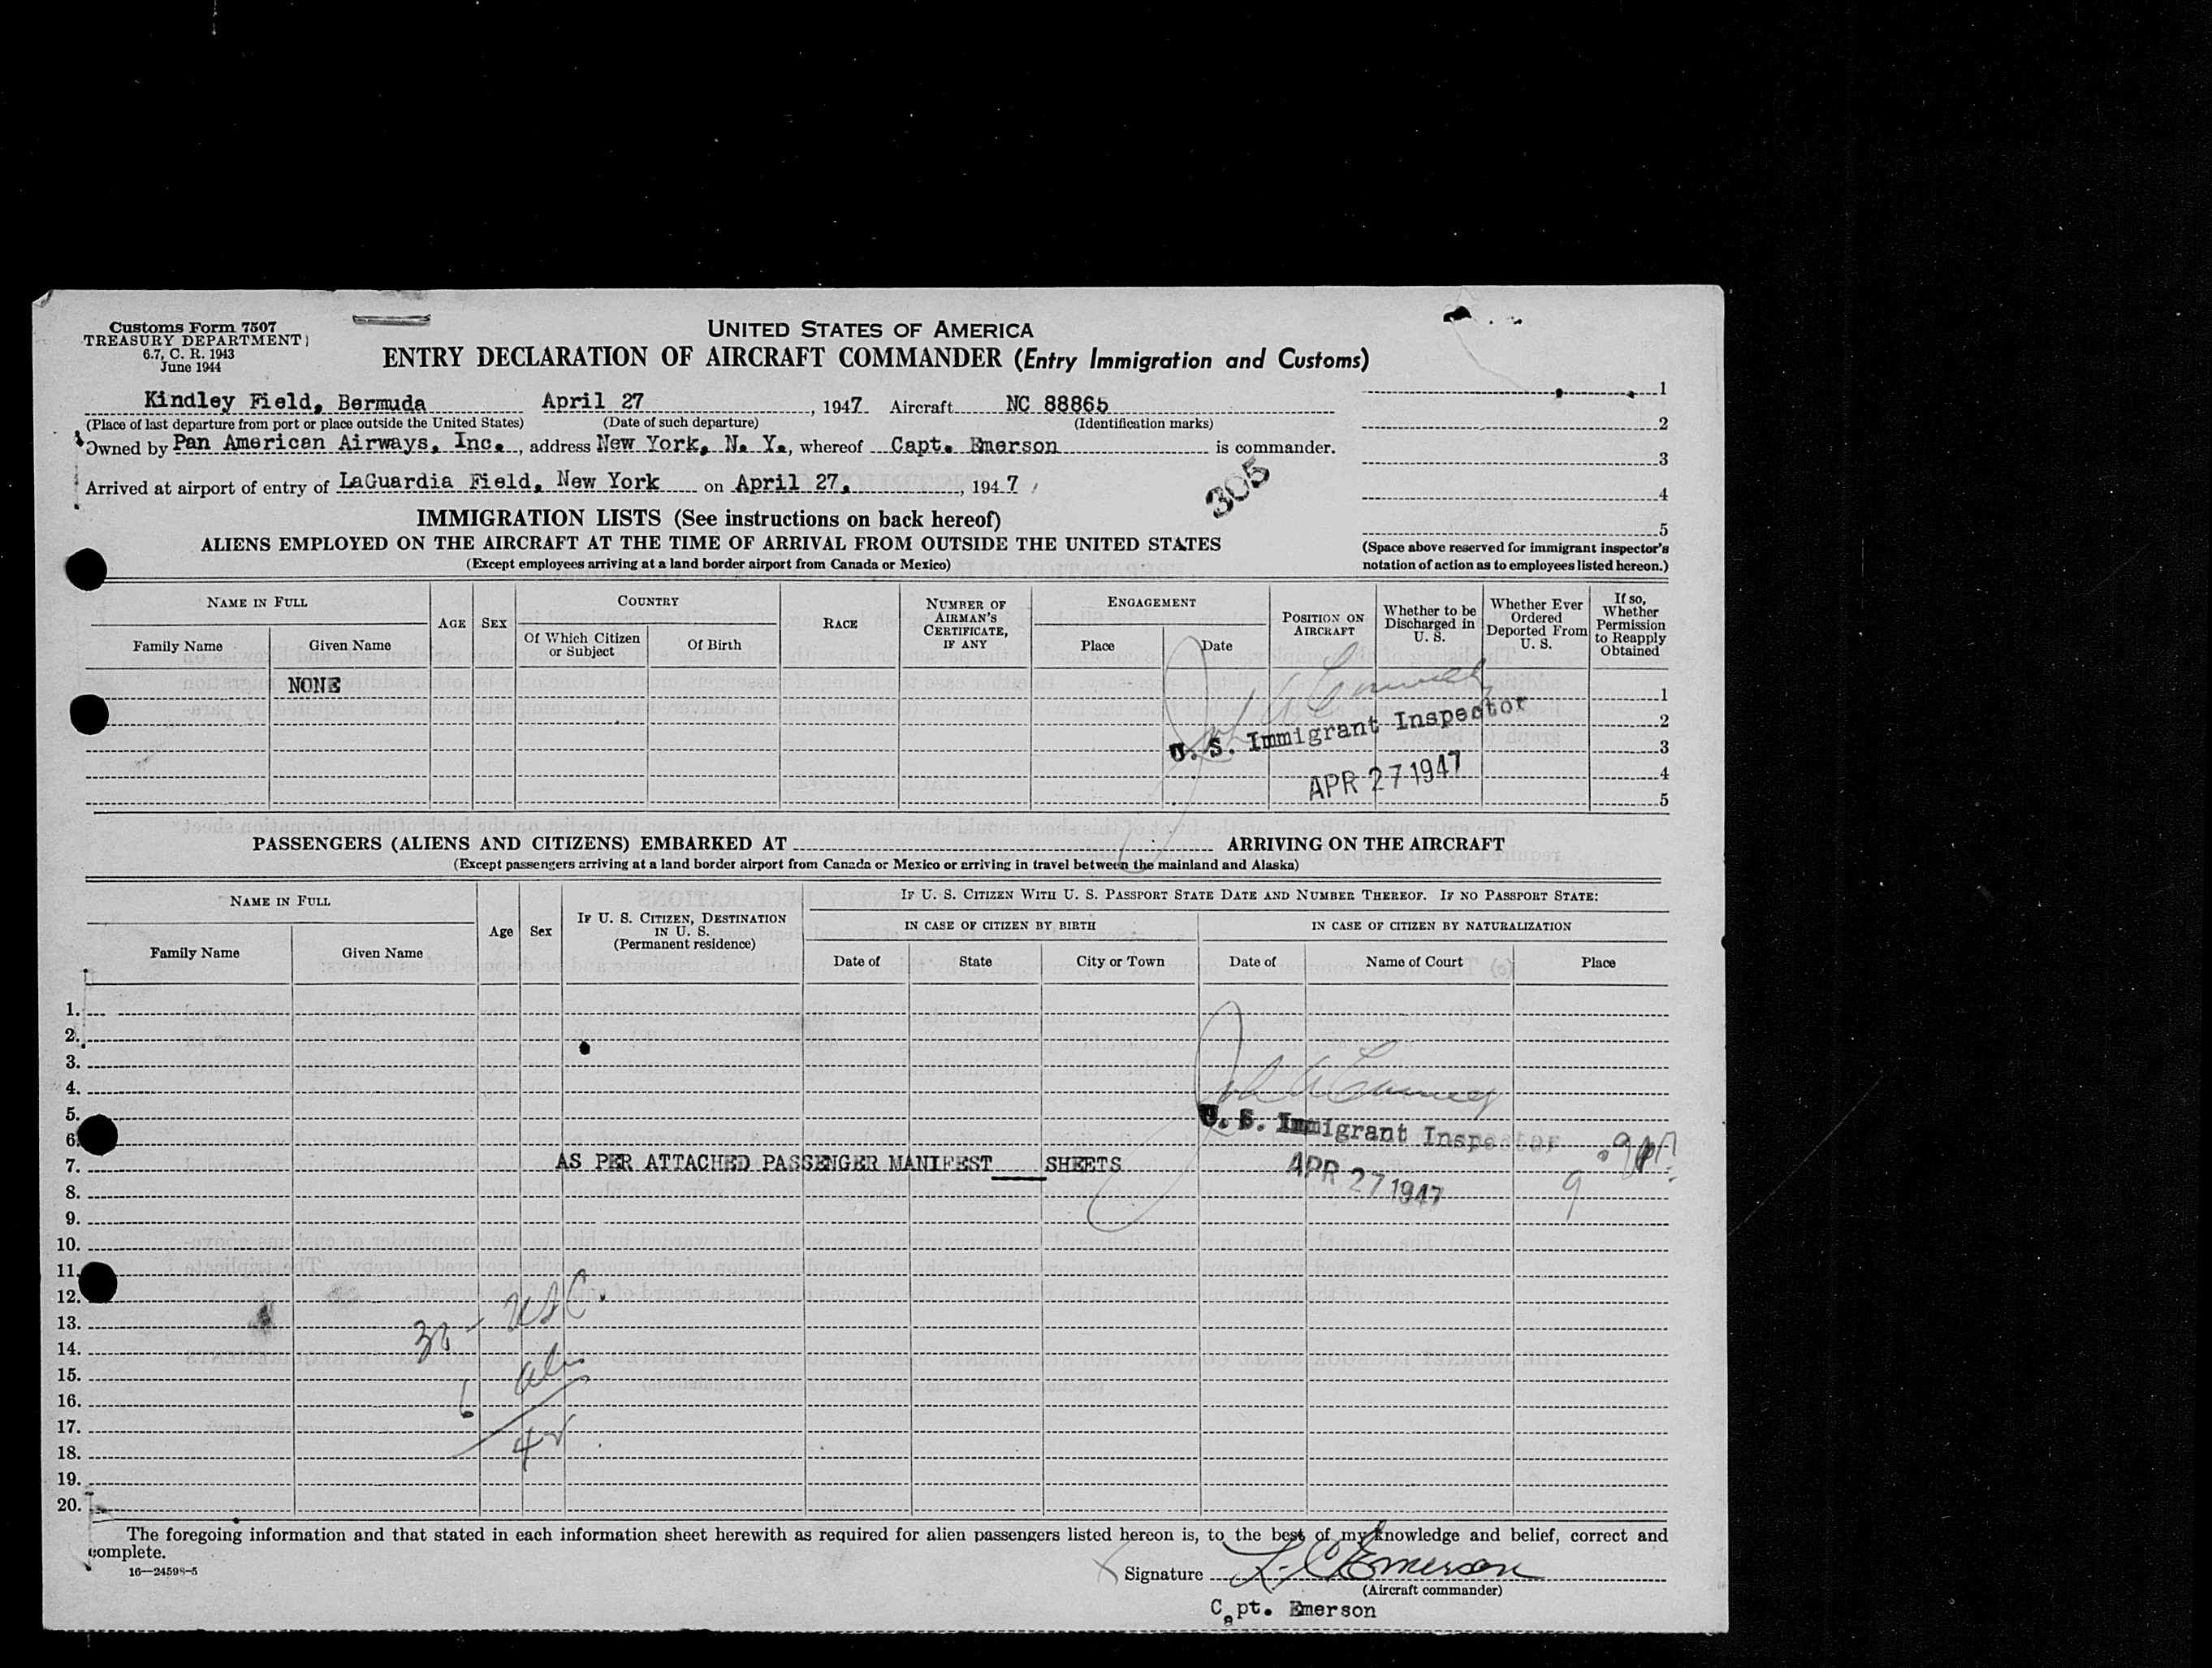 Customs Form 7507
TREASURY DEPARTMENT
6.7, C. R. 1943
June 1944
UNITED STATES OF AMERICA
ENTRY DECLARATION OF AIRCRAFT COMMANDER (Entry Immigration and Customs)
Kindley Field, Bermuda April 27, 1947 Aircraft NC 88865
(Place of last departure from port or place outside the United States) (Date of such departure) (Identification marks)
Owned by Pan American Airways, Inc., address New York, N. Y., whereof Capt. Emerson is commander.
Arrived at airport of entry of LaGuardia Field, New York on April 27, 1947
305
1
2
3
4
5
(Space above reserved for immigrant inspector's
notation of action as to employees listed hereon.)
IMMIGRATION LISTS (See instructions on back hereof)
ALIENS EMPLOYED ON THE AIRCRAFT AT THE TIME OF ARRIVAL FROM OUTSIDE THE UNITED STATES
(Except employees arriving at a land border airport from Canada or Mexico)
NAME IN FULL
Family Name Given Name
AGE SEX
COUNTRY
Of Which Citizen or Subject Of Birth
RACE
NUMBER OF AIRMAN'S CERTIFICATE, IF ANY
ENGAGEMENT
Place Date
POSITION ON AIRCRAFT
Whether to be Discharged in U. S.
Whether Ever Ordered Deported From U. S.
If so, Whether Permission to Reapply Obtained
NONE 1
2
3
4
5
U. S. Immigrant Inspector
APR 27 1947
PASSENGERS (ALIENS AND CITIZENS) EMBARKED AT ARRIVING ON THE AIRCRAFT
(Except passengers arriving at a land border airport from Canada or Mexico or arriving in travel between the mainland and Alaska)
NAME IN FULL
Family Name Given Name
Age Sex
IF U. S. CITIZEN, DESTINATION IN U. S.
(Permanent residence)
IF U. S. CITIZEN WITH U. S. PASSPORT STATE DATE AND NUMBER THEREOF. IF NO PASSPORT STATE:
IN CASE OF CITIZEN BY BIRTH IN CASE OF CITIZEN BY NATURALIZATION
Date of State City or Town Date of Name of Court Place
1.
2.
3.
4.
5.
6.
7. AS PER ATTACHED PASSENGER MANIFEST SHEETS
U. S. Immigrant Inspector
APR 27 1947
9
8.
9.
10.
11.
12.
13.
USC.
14.
15.
16.
6
17.
18.
19.
20.
The foregoing information and that stated in each information sheet herewith as required for alien passengers listed hereon is, to the best of my knowledge and belief, correct and
complete.
16—24598-5
Signature L. C. Emerson
(Aircraft commander)
Capt. Emerson